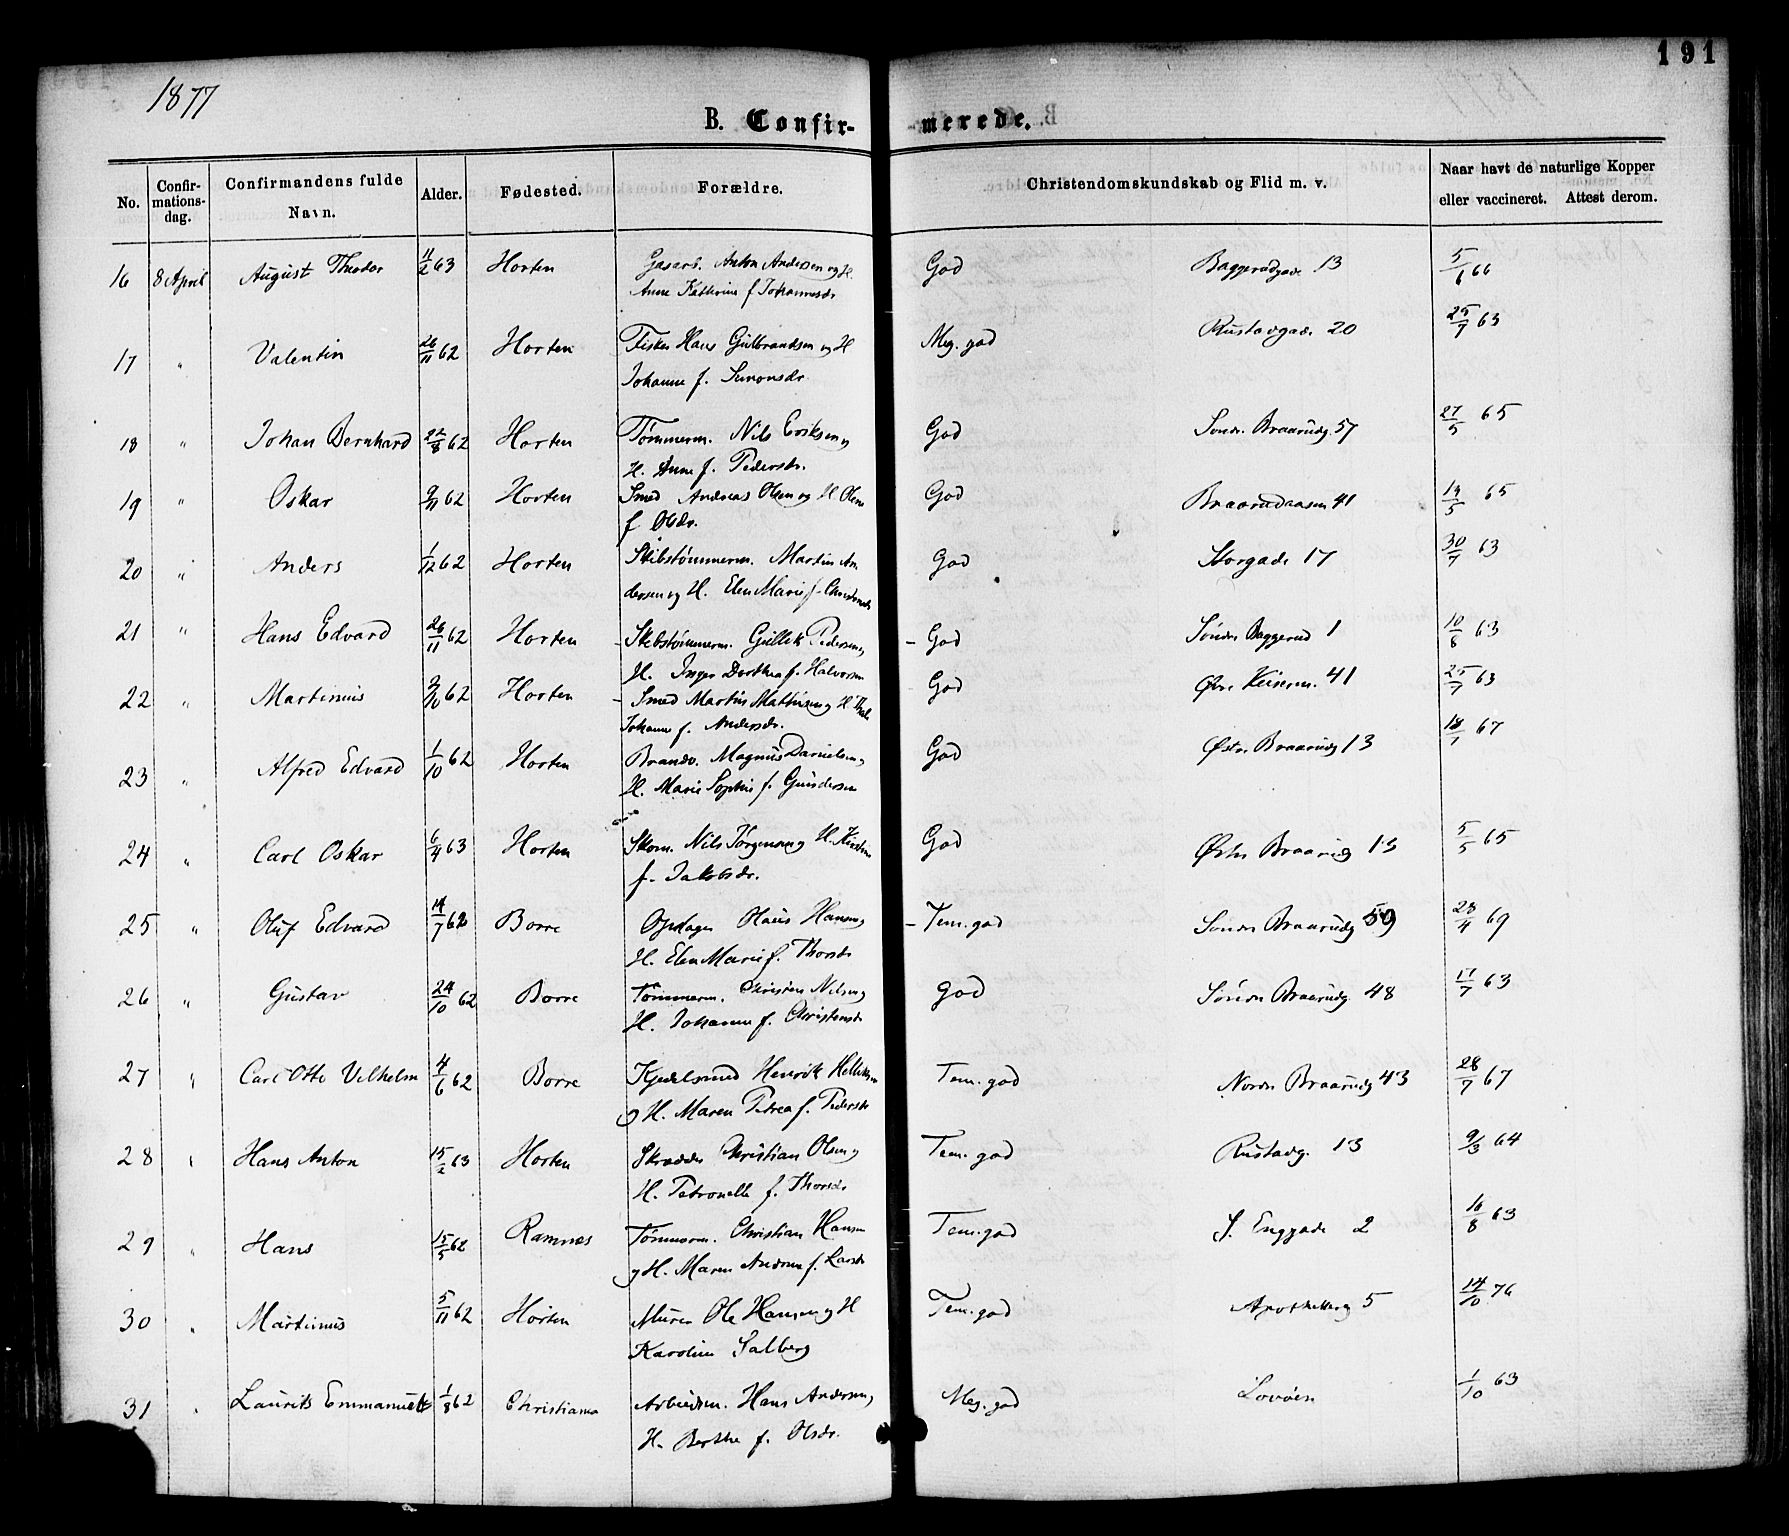 1877
191
B. Confir-
merede.
No.
Confir-
mations-
dag.
Confirmandens fulde
Navn.
Alder.
Fødested.
Forældre.
Christendomskundskab og Flid m. v.
Naar havt de naturlige Kopper
eller vaccineret. Attest derom.
16 8 April August Theodor 11/2 63 Horten Anton Andersen og H. God 13 5/6 66
Anne Kathrine f. Johannesdr
17 " Valentin 26/11 62 Horten Fisker Hans Gulbrandsen og H Meg. god Rustadgad. 20 25/7 63
Johanne f. Simonsdr.
18 " Johan Bernhard 22/8 62 Horten Tømmerm. Nils Eriksen og God Søndr. Braarudg. 57 27/5 65
H. Anne f. Pedersdr.
19 " Oskar 9/11 62 Horten Smed Andreas Olsen og H. God Braarudaasen 41 65
f. Olsdr.
20 " Anders 1/12 62 Horten Skibstømmerm. Martin An God Storgade 17 30/7 63
dersen og H. Elen Marie f.
21 " Hans Edvard 26/11 62 Horten - Skibstømmerm. Gullik Pedersen og - God Søndr Baggerud 1 10/6 63
H. Inger Dorthea f. Halvorsen
22 " Martinius 9/10 62 Horten - Smed Martin Mathisen og H. - God Øvre Keiserm. 41 25/7 63
Johanne f. Andersdr.
23 " Alfred Edvard 1/10 62 Horten Brandv. Magnus Danielsen og God Østr. Braarudg 13 18/7 67
H. Marie Sophie f. Gundersen
24 " Carl Oskar 6/4 63 Horten Skom. Nils Jørgensen og H. Kirstine God Østr Braarudg 13 5/5 65
f. Jakobsdr.
25 " Oluf Edvard 14/7 62 Borre Opdager Olaus Hansen og - Tem. god Søndr Braarudg 59 28/4 69
H. Elen Marie f. Thorsdr
26 " Gustav 24/10 62 Borre Tømmerm. Christen Nilsen og god Søndr Braarudg 48 17/7 63
H. Johanne f. Christensdr
27 " Carl Otto Vilhelm 4/6 62 Borre Kjedelsmed Henrik Helliksen Tem. god Nordr Braarudg 43 28/7 67
og H. Maren Petrea f. Pedersdr
28 " Hans Anton 15/2 63 Horten Skrædder Christian Olsen og Tem. god Rustadg. 13 9/3 64
H. Petronelle f. Thorsdr
29 " Hans 15/5 62 Ramnæs Tømmerm. Christian Hansen Tem. god S. Enggade 2 16/8 63
og H. Maren Andrea f. Larsdr
30 " Martinius 5/11 62 Horten Murer Ole Hansen og H Tem. god Apothekerg 5 14/10 76
Karoline Salberg
31 " Laurits Emmanuel 1/8 62 Christiania Arbeidsm. Hans Andersen og Meg. god Lovøen 1/10 63
H. Berthe f. Olsdr.